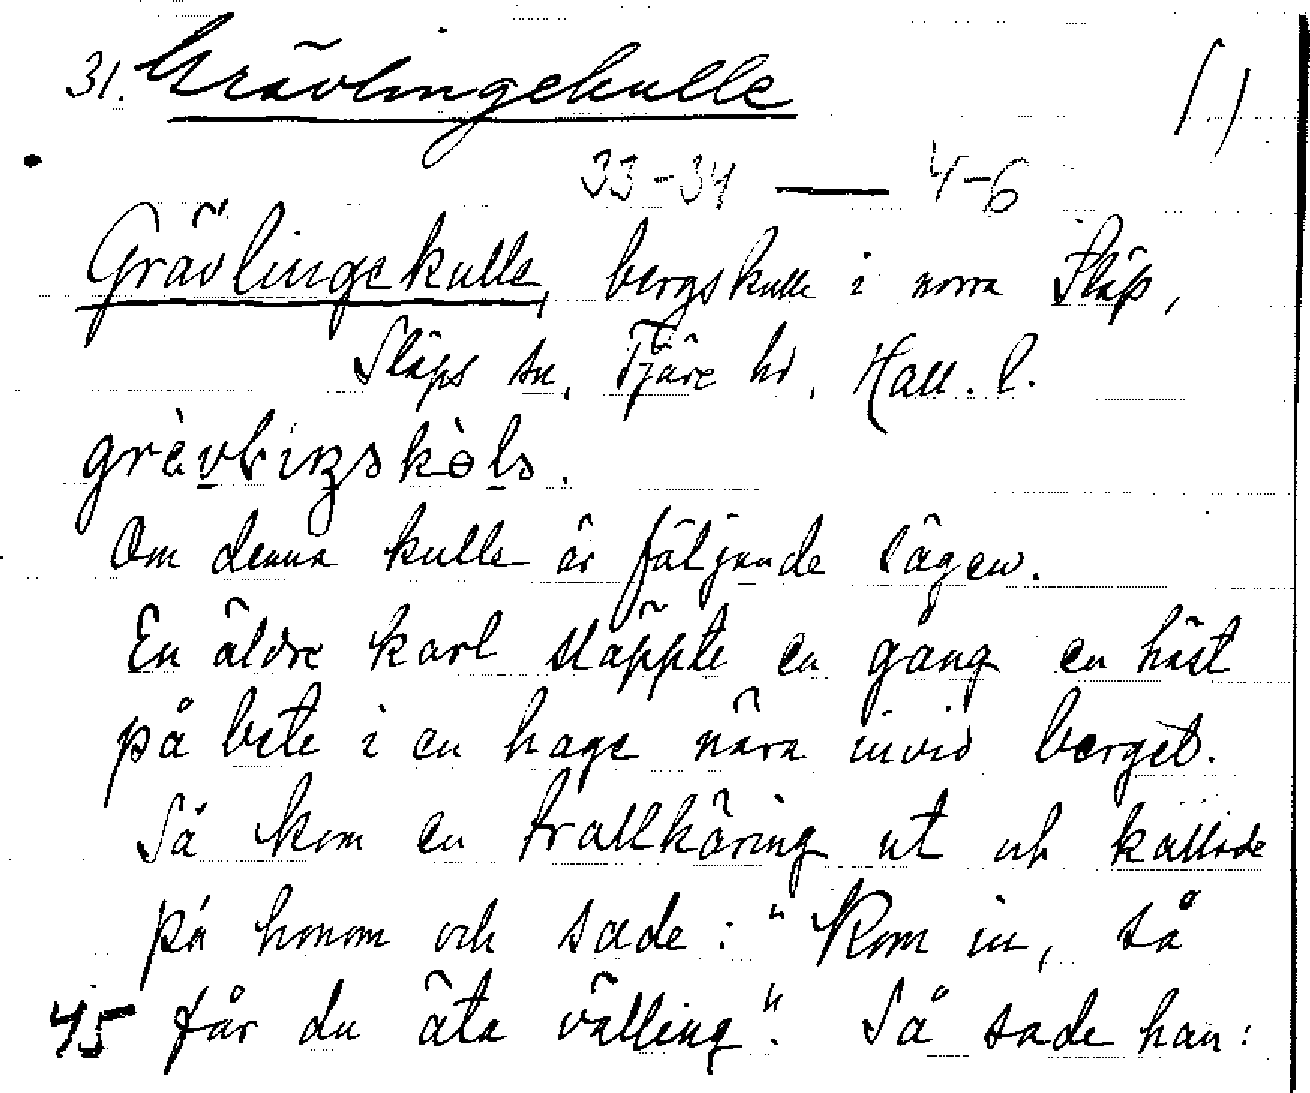 31. Grävlingekulle 1.)
33-34 — 4-6
Grävlingekulle, bergskulle i norra Släp,
Släps sn, Fjäre hd, Hall. l.
Om denna kulle är följande sägen.
En äldre karl släppte en gång en häst
på bete i en hage nära invid berget.
Så kom en trollkäring ut och kallade
på honom och sade: "Kom in, så
45 får du äta välling". Så sade han: